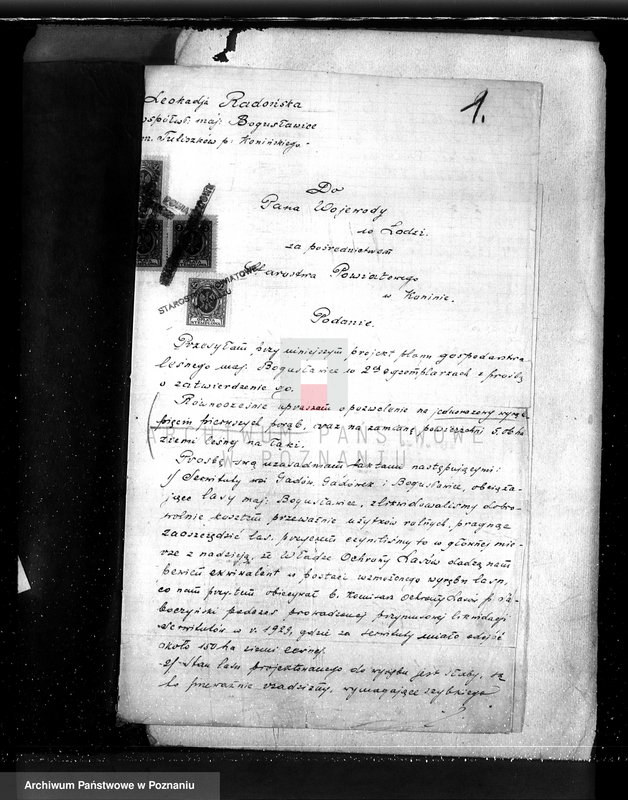 Leokadja Radońska
współwł. maj. Bogusławice
m. Tuliszków p. Konińskiego.
1.
Do
Pana Wojewody
w Łodzi.
za pośrednictwem
Starostwa Powiatowego
w Koninie.
STAROSTWO POWIATOWE
Podanie.
Przesyłam przy niniejszym projekt planu gospodarstwa
leśnego maj. Bogusławice w 2ch egzemplarzach z prośbą
o zatwierdzenie go.
Równocześnie upraszam o pozwolenie na jednorazowy wyrąb
pierwszych poręb, oraz na zamianę powierzchni 5,06 ha
ziemi leśnej na łąki.
Prośbę swą uzasadniam faktami następującymi:
1/ Serwituty wsi Gadów, Gadówek i Bogusławic, obciąża-
jące lasy maj. Bogusławice, zlikwidowaliśmy dobro-
wolnie kosztem przeważnie użytków rolnych, pragnąc
zaoszczędzić las, przyczem czyniliśmy to w głównej mie-
rze z nadzieją, że Władze Ochrony Lasów dadzą nam
pewien ekwiwalent w postaci wzmożonego wyrębu lasu,
co nam przytem obiecywał b. Komisarz Ochrony Lasów p.
podczas prowadzonej przymusowej likwidacji
serwitutów w r. 1923, gdzie za serwituty miało odejść
około 150 ha ziemi ornej.
2/ Stan lasu projektowanego do wyrębu jest słaby, są
to przeważnie wymagające szybkiego
ARCHIWUM PAŃSTWOWE
W POZNANIU
Archiwum Państwowe w Poznaniu